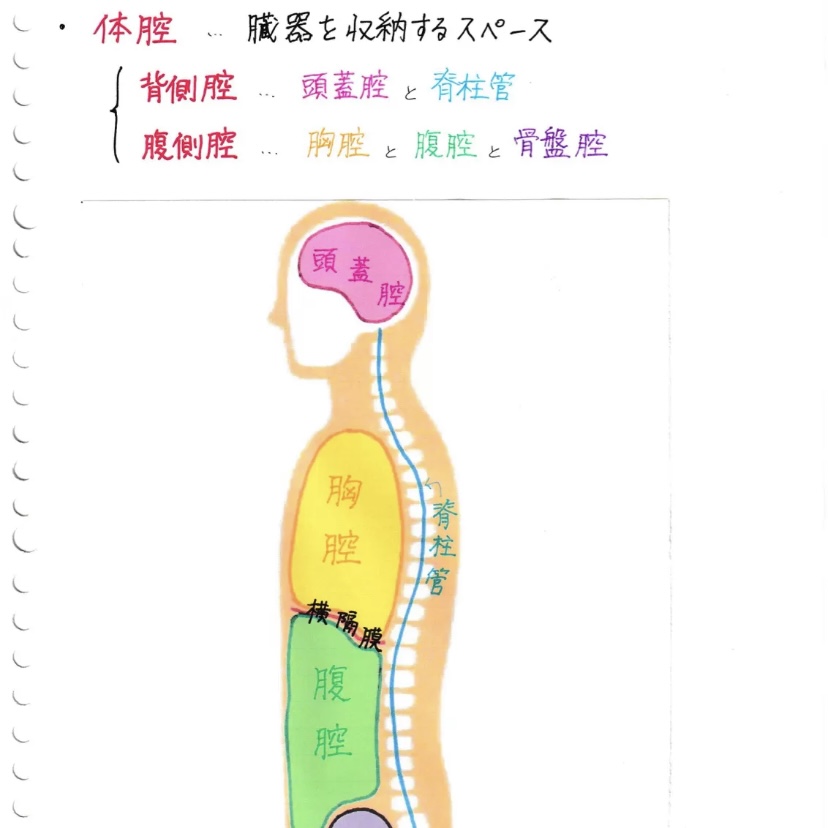 ・体腔 … 臓器を収納するスペース
背側腔 … 頭蓋腔と脊柱管
腹側腔 … 胸腔と腹腔と骨盤腔
頭蓋腔
胸腔
脊柱管
横隔膜
腹腔